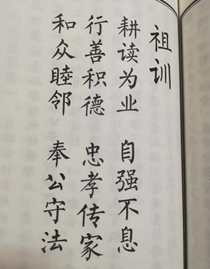 祖训
耕读为业 自强不息
行善积德 忠孝传家
和众睦邻 奉公守法